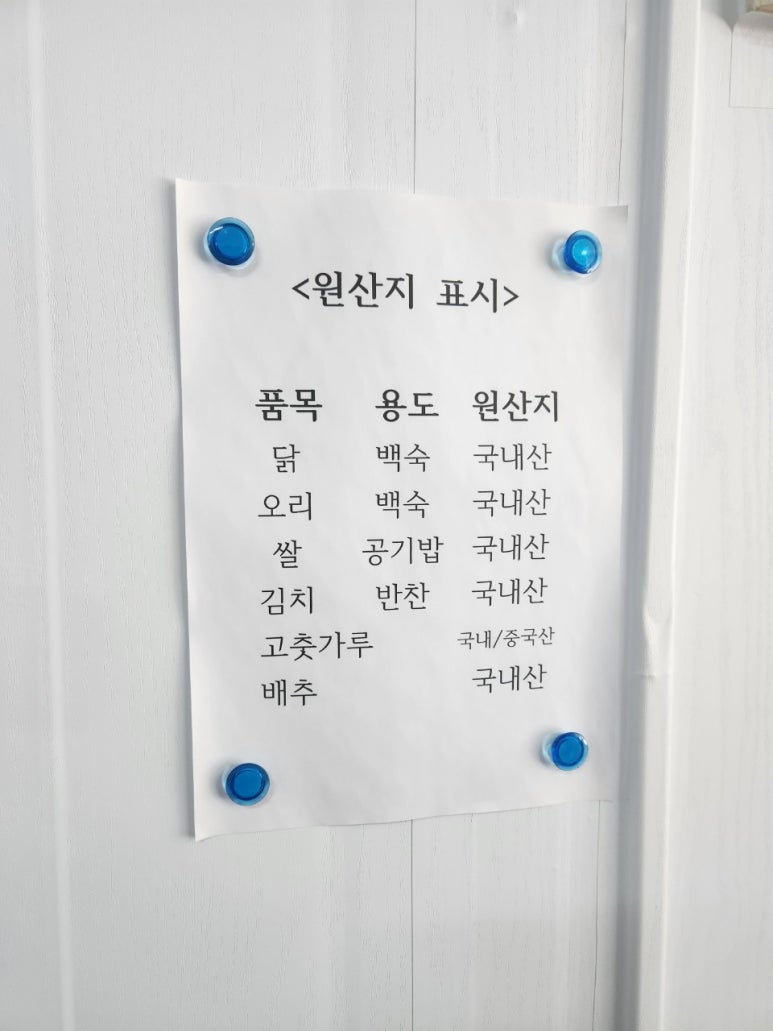 <원산지 표시>
품목 용도 원산지
닭 백숙 국내산
오리 백숙 국내산
쌀 공기밥 국내산
김치 반찬 국내산
고춧가루 국내/중국산
배추 국내산